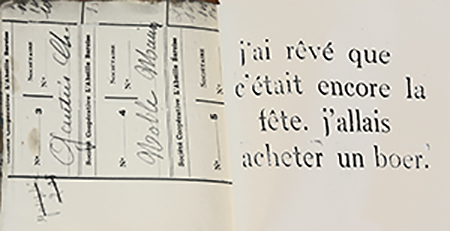 Société Coopérative L'Abeille
N° 3 Sociétaire
Société Coopérative L'Abeille
N° 4 Sociétaire
N°
Noble
Société Coopérative L'Abeille
N° 5 Sociétaire
j'ai rêvé que
c'était encore la
fête. j'allais
acheter un boer.